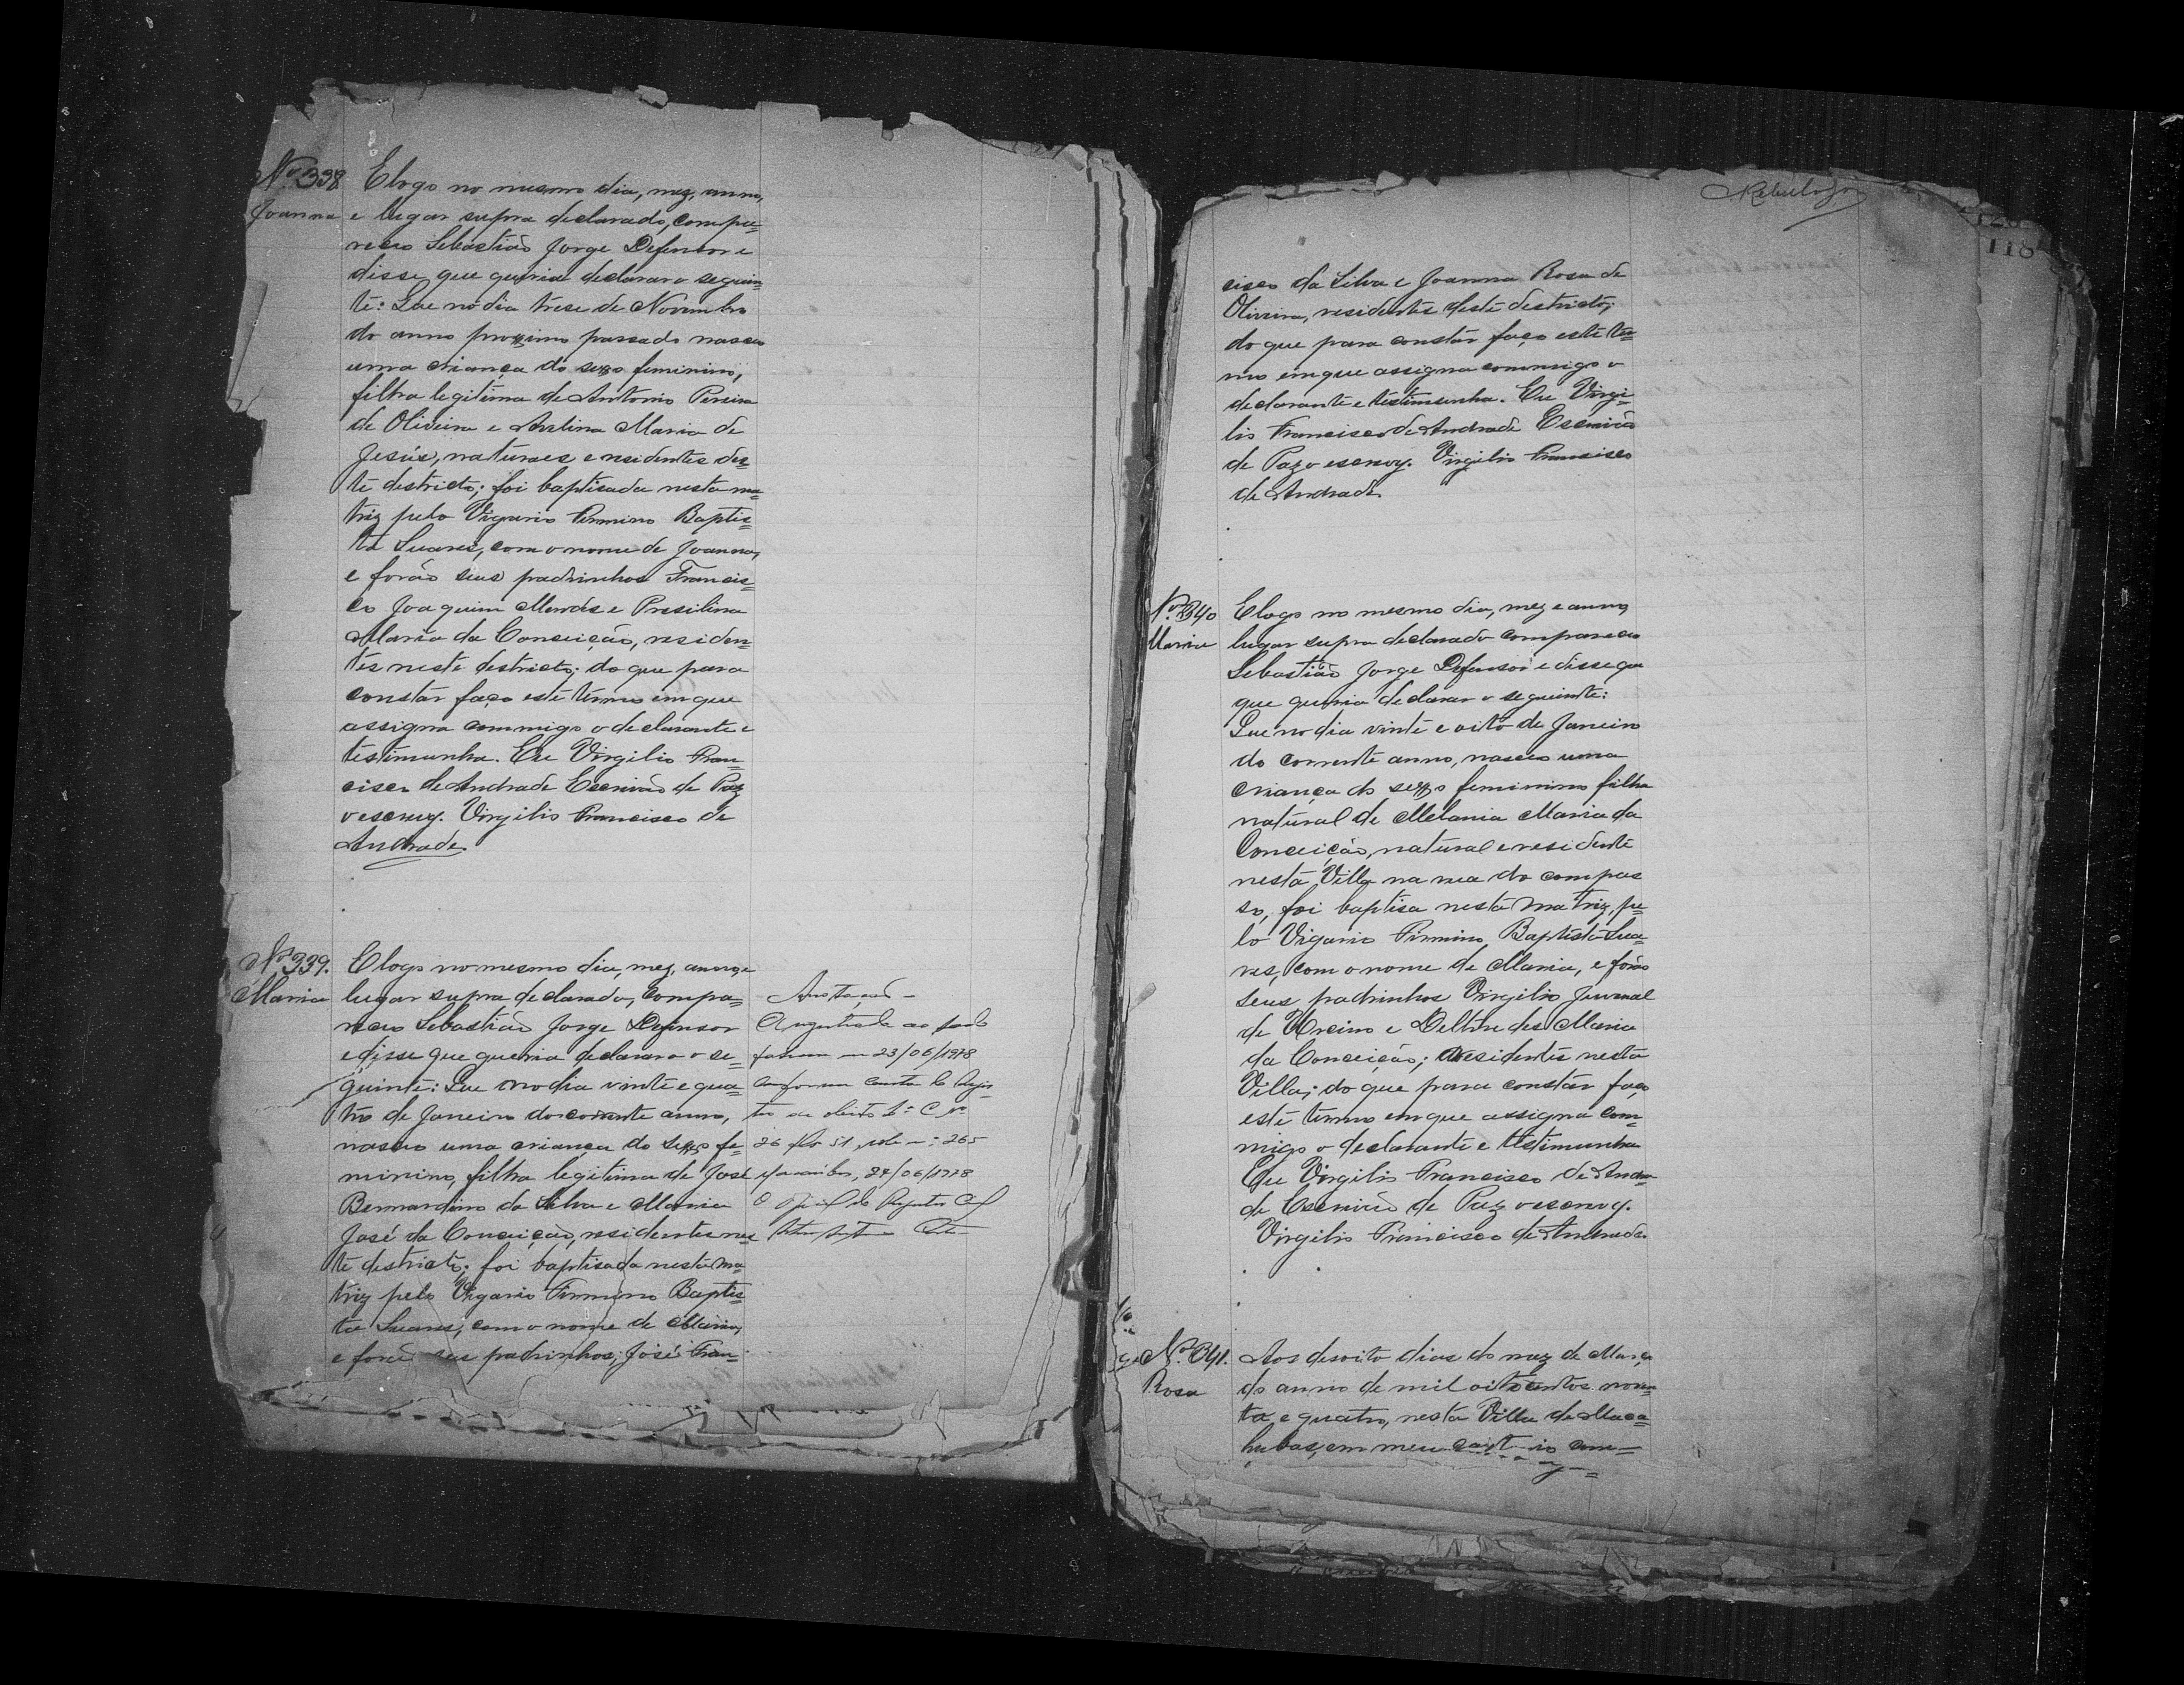 Nº 338
Joanna
E logo no mesmo dia, mez, anno,
e lugar supra declarado, compa=
receo Sebastião Jorge Defensor e
disse que queria declarar o seguin=
te: Que no dia trese de Novembro
do anno proximo passado nasceu
uma criança do sexo feminino,
filha legitima de Antonio Pereira
de Oliveira e Avelina Maria de
Jesús, naturaes e residentes des=
te districto; foi baptisada nesta ma=
triz pelo Vigario Firmino Baptis=
ta Suares, com o nome de Joanna,
e forão seus padrinhos Francis=
co Joaquim Mendes e Presilina
Maria da Conceição, residen=
tes neste destricto; do que para
constar faço este termo em que
assigna commigo o declarante e
testimunha. Eu Virgilio Fran=
cisco de Andrade Escrivão de Paz
o escrevy. Virgilio Francisco de
Andrade
Nº 339.
Maria
E logo no mesmo dia, mez, anno, e
lugar supra declarado, compa=
receo Sebastião Jorge Defensor
e disse que queria declarar o se=
guinte: Que no dia vinte e qua=
tro de Janeiro do corrente anno,
nasceo uma criança do sexo fe=
minino, filha legitima de José
Bernardino da Silva e Maria
José da Conceição, residentes nes
te destricto; foi baptisada nesta ma
triz pelo Vigario Firmino Baptis=
ta Suares, com o nome de Maria,
e forão seus padrinhos, José Fran=
Anotação -
em 23/06/1978
26 fls 51, sob nº 265
24/06/1978
O Oficial do Registro Civil
118
cisco da Silva e Joanna Rosa de
Oliveira, residentes deste destricto;
do que para constar faço este ter=
mo em que assigna commigo o
declarante e testimunha. Eu Virgi=
lio Francisco de Andrade Escrivão
de Paz o escrevy. Virgilio Francisco
de Andrade
Nº 340
Maria
E logo no mesmo dia, mez e anno,
lugar supra declarado compareceo
Sebastião Jorge Defensor e disse que
que queria declarar o seguinte:
Que no dia vinte e oito de Janeiro
do corrente anno, nasceo uma
criança do sexo feminino filha
natural de Melania Maria da
Conceição, natural e residente
nesta Villa na rua do compas
so, foi baptisa nesta matriz, pe=
lo Vigario Firmino Baptista Sua=
res, com o nome de Maria, e forão
seus padrinhos Virgilio Juvenal
de Ursino e Delthrudes Maria
da Conceição; residentes nesta
Villa; do que para constar faço
este termo em que assigna com=
migo o declarante e testimunha
Eu Virgilio Francisco de Andra=
de Escrivão de Paz o escrevy.
Virgilio Francisco de Andrade.
Nº 341.
Rosa
Aos desoito dias do mez de Março
do anno de mil oitocentos noven=
ta e quatro, nesta Villa de Maca=
hubas, em meu cartorio com=